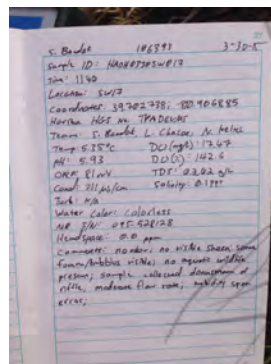 S. Boudot 106393 3-30-
Sample ID:
Time: 1140
Location: SW17
Coordinates: 39.702738; -80.906885
Horiba
Team: S. Boudot, L. Chasse, N.
Temp: 5.35°C DO (mg/L): 17.47
pH: 5.93 DO (%): 142.6
ORP: 81mV TDS: g/L
Cond: 311 µs/cm Salinity: 0.1
Turb: N/A
Water Color: Colorless
MR S/N: 095-528128
Headspace: 0.0 ppm
Comments: no odor; no visible sheen; some
foam/bubbles visible; no aquatic wildlife
present; sample collected downstream of
riffle, moderate flow rate; turbidity upon